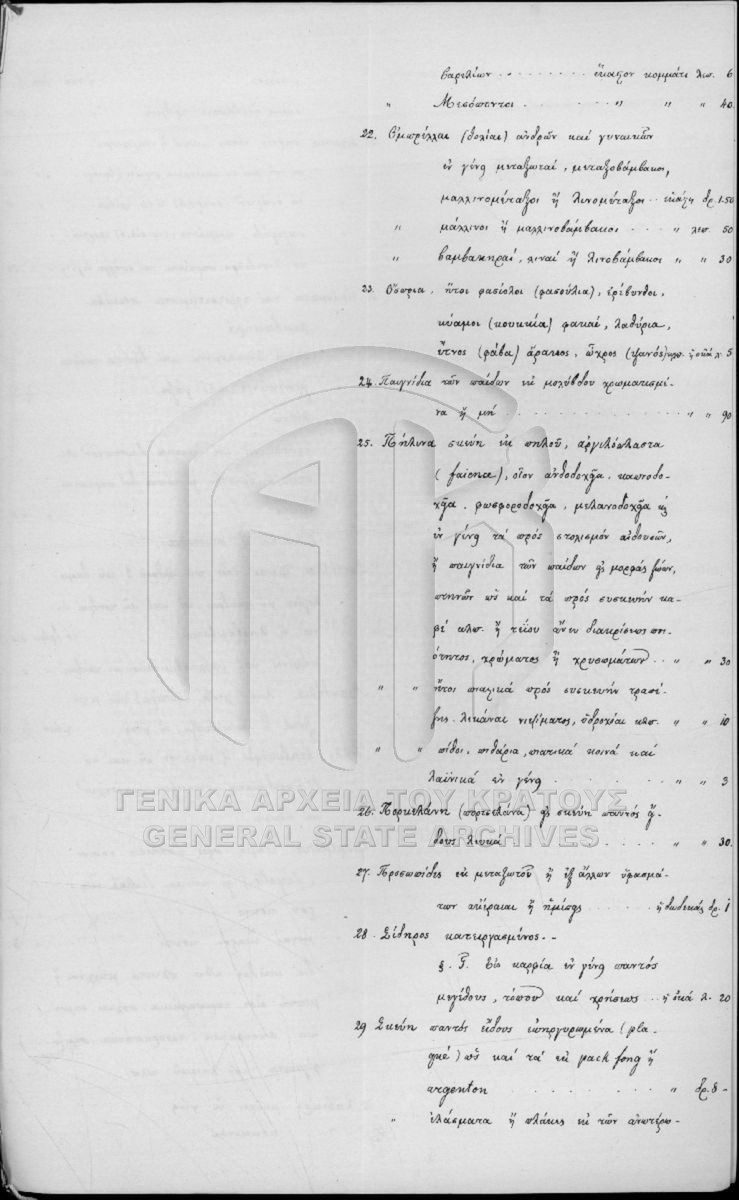 βαρελίων . . . . . . . . ἕκαστον κομμάτι λεπ. 6
" Μεσόπαντοι . . . . . . " " " 40
22. Ὀμπρέλλαι (θολίαι) ἀνδρῶν καί γυναικῶν
ἐν γένει μεταξωταί, μεταξοβάμβακοι,
μαλλινομέταξοι ἤ λινομέταξοι .. ἑκάστη δρ. 1.50
" μάλλινοι ἤ μαλλινοβάμβακοι . . . . " λεπ. 50
" βαμβακηραί, λιναί ἤ λινοβάμβακοι " " 30
23. Ὄσπρια, ἤτοι φασίολοι (φασούλια), ἐρίβυνθοι,
κύαμοι (κουκκία) φακαί, λαθύρια,
ἔτνος (φάβα) ἄρακος, ὦχρος κλπ. ἡ ὀκᾶ λ. 5
24. Παιγνίδια τῶν παίδων ἐκ μολύβδου χρωματισμέ-
να ἤ μή . . . . . . . . . . " " 90
25. Πήλινα σκεύη ἐκ πηλοῦ, ἀργιλόπλαστα
(faience), οἷον ἀνθοδοχεῖα, καπνοδο-
χεῖα, φωσφοροδοχεῖα, μελανοδοχεῖα κ
ἐν γένει τά πρός στολισμόν αἰθουσῶν,
ἤ παιγνίδια τῶν παίδων εἰς μορφάς ζώων,
πτηνῶν ὡς καί τά πρός συσκευήν κα-
φέ κλπ. ἤ τεΐου ἄνευ διακρίσεως ποι-
ότητος, χρώματος ἤ χρυσωμάτων . . " " 30
" " ἤτοι πιατικά πρός συσκευήν τραπέ-
ζης, λεκάναι νιψίματος, ὑδροχόαι κλπ. " " 10
" " πίθοι, πιθάρια, πιατικά κοινά καί
λαϊνικά ἐν γένει . . . . . . " " 3
26. Πορκελάνη (πορσελάνα) εἰς σκεύη παντός εἴ-
δους λευκά . . . . " " 30.
27. Προσωπίδες ἐκ μεταξωτοῦ ἤ ἐξ ἄλλων ὑφασμά-
των ἀκέραιαι ἤ ἡμίσειαι . . . . . ἡ δωδεκάς δρ. 1
28. Σίδηρος κατειργασμένος . -
§. Γ. Εἰς καρφία ἐν γένει παντός
μεγέθους, τόπου καί χρήσεως . . ἡ ὀκᾶ λ. 20
29 Σκεύη παντός εἴδους ἐπηργυρωμένα (pla-
qué) ὡς καί τά ἐκ pack fong ἤ
argenton . . . . . . . " δρ. 5 -
" ἐλάσματα ἤ πλάκες ἐκ τῶν ἀνωτέρω -
ΓΕΝΙΚΑ ΑΡΧΕΙΑ ΤΟΥ ΚΡΑΤΟΥΣ
GENERAL STATE ARCHIVES